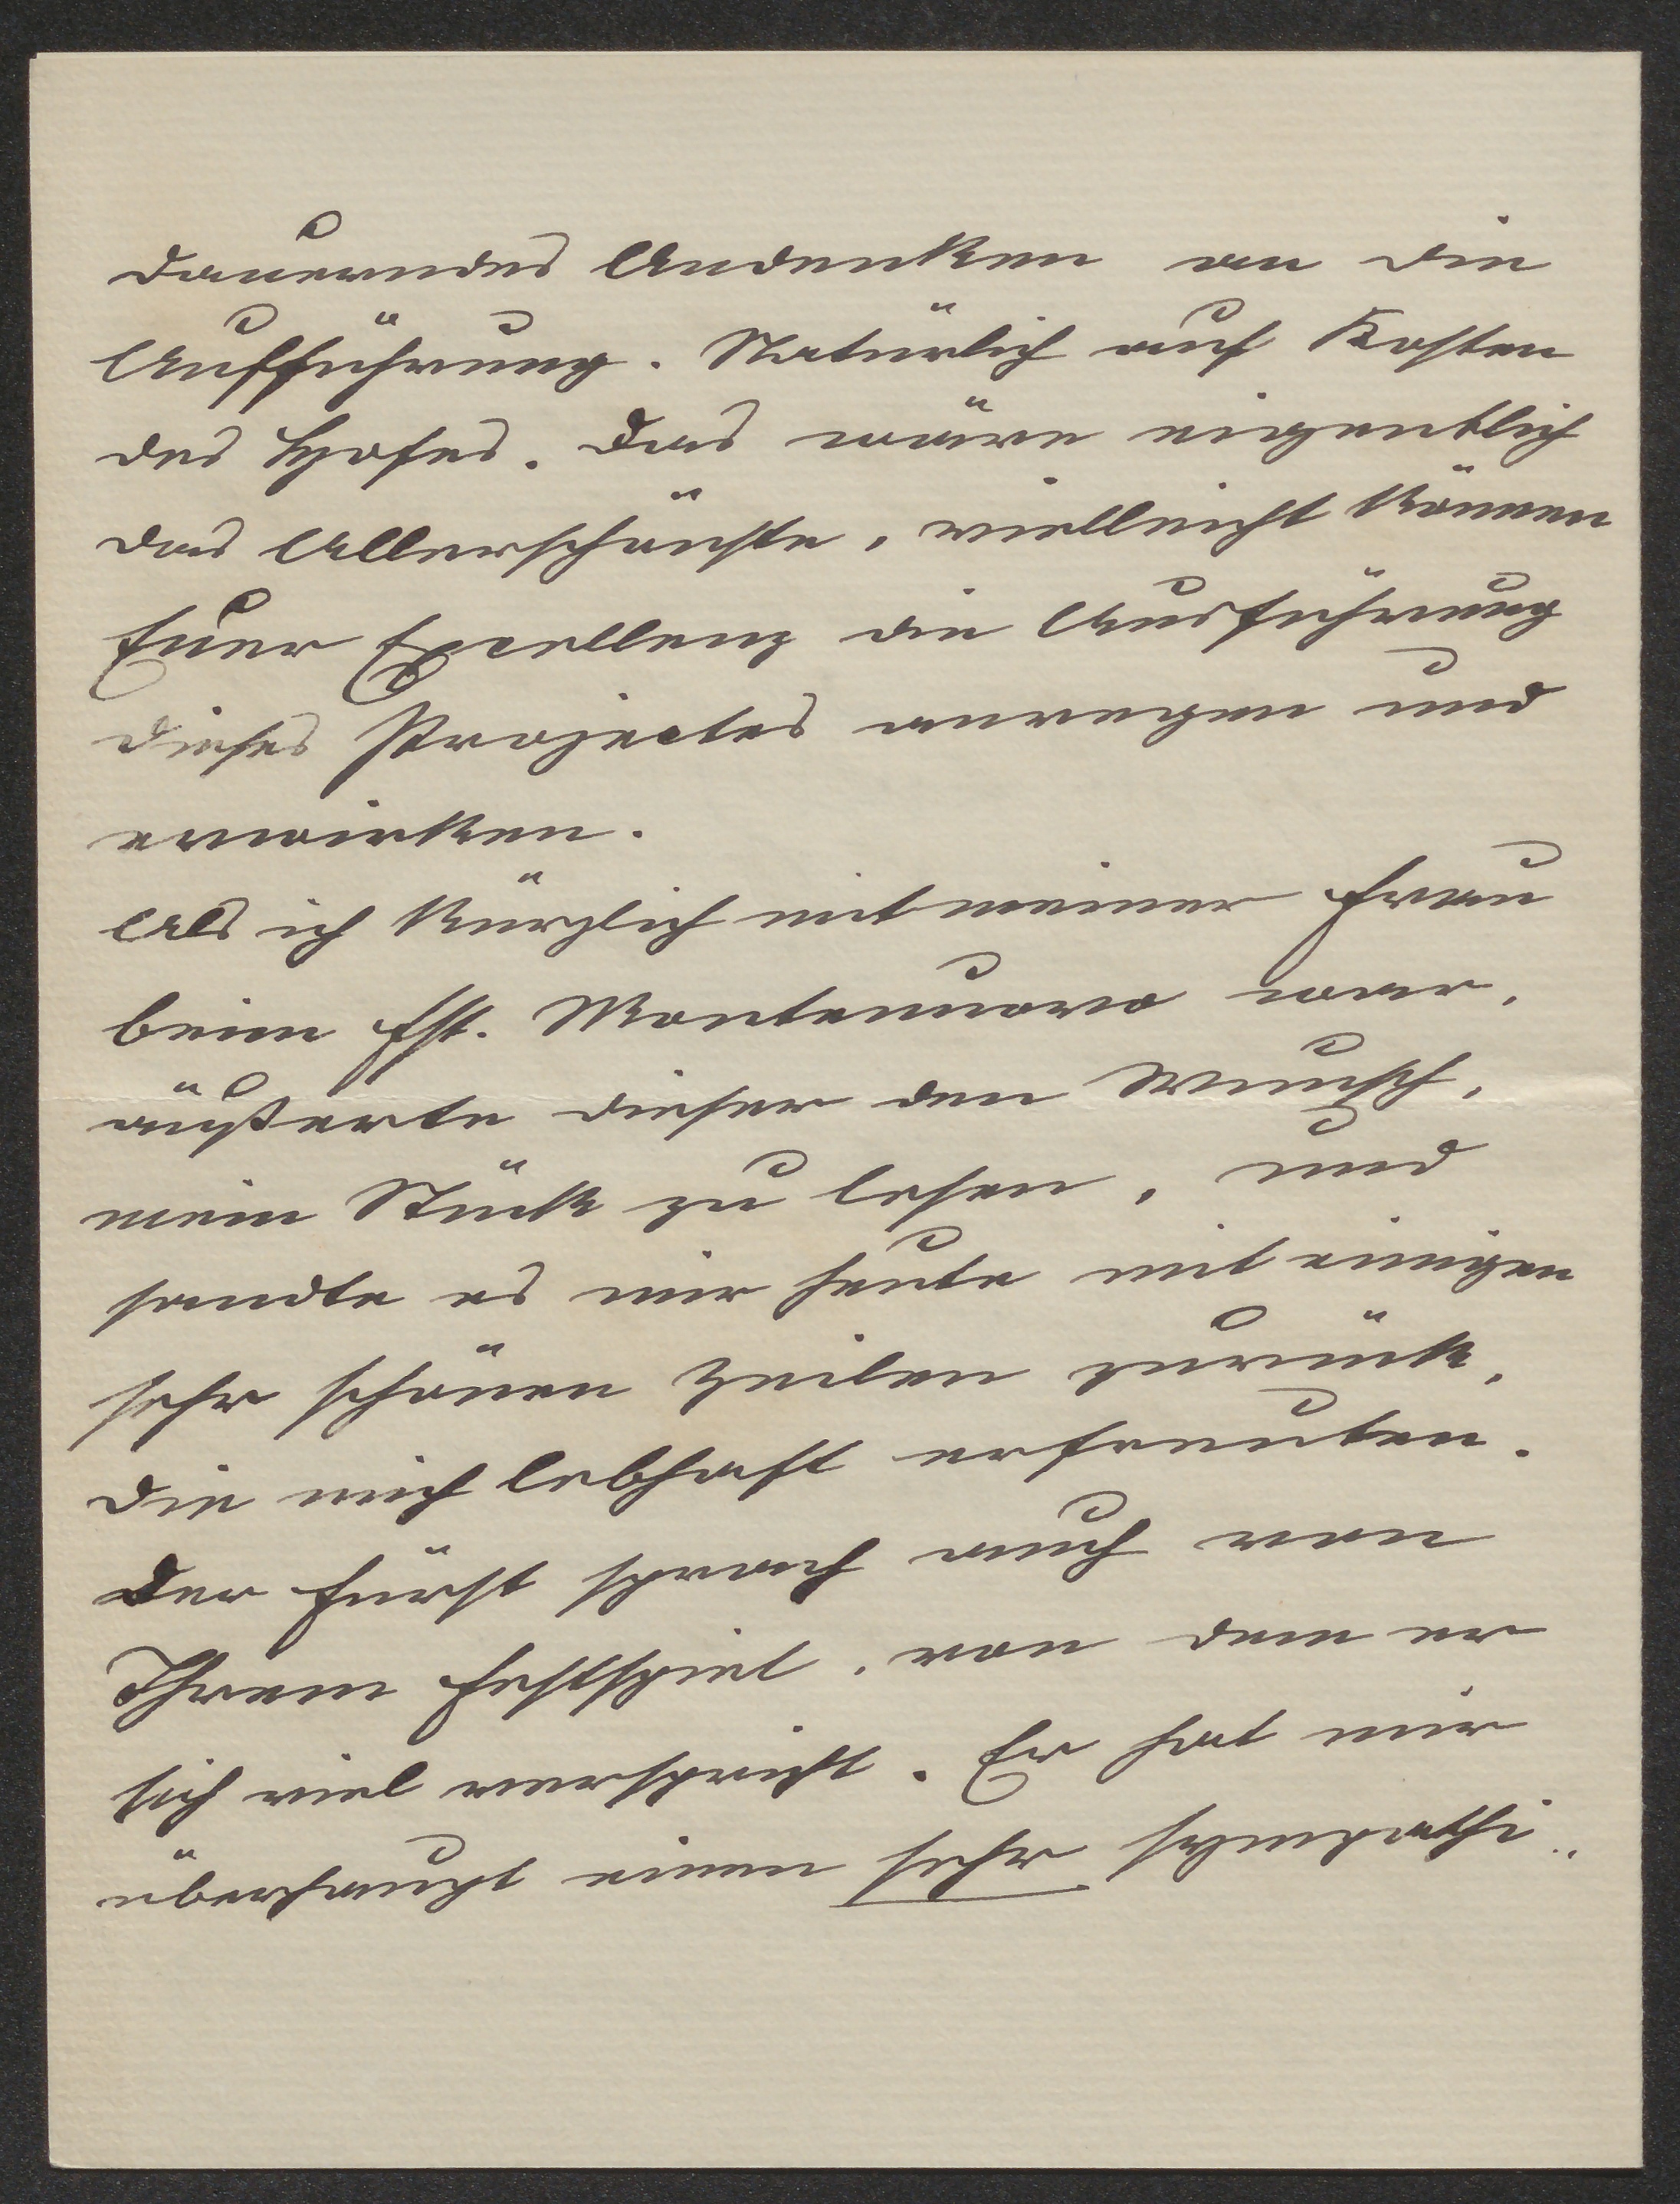 dauerndes Andenken an die
Aufführung. Natürlich auf Kosten
des Hofes. Das wäre eigentlich
das Allerschönste, vielleicht können
Euer Excellenz die Ausführung
dieses Projectes anregen und
erwirken.
Als ich kürzlich mit meiner Frau
beim Fst. Montenuovo war,
äußerte dieser den Wunsch,
mein Stück zu lesen, und
sandte es mir heute mit einigen
sehr schönen Zeilen zurück,
die mich lebhaft erfreuten.
Der Fürst sprach auch von
Ihrem Festspiel, von dem er
sich viel verspricht. Er hat mir
überhaupt einen sehr sympathi-